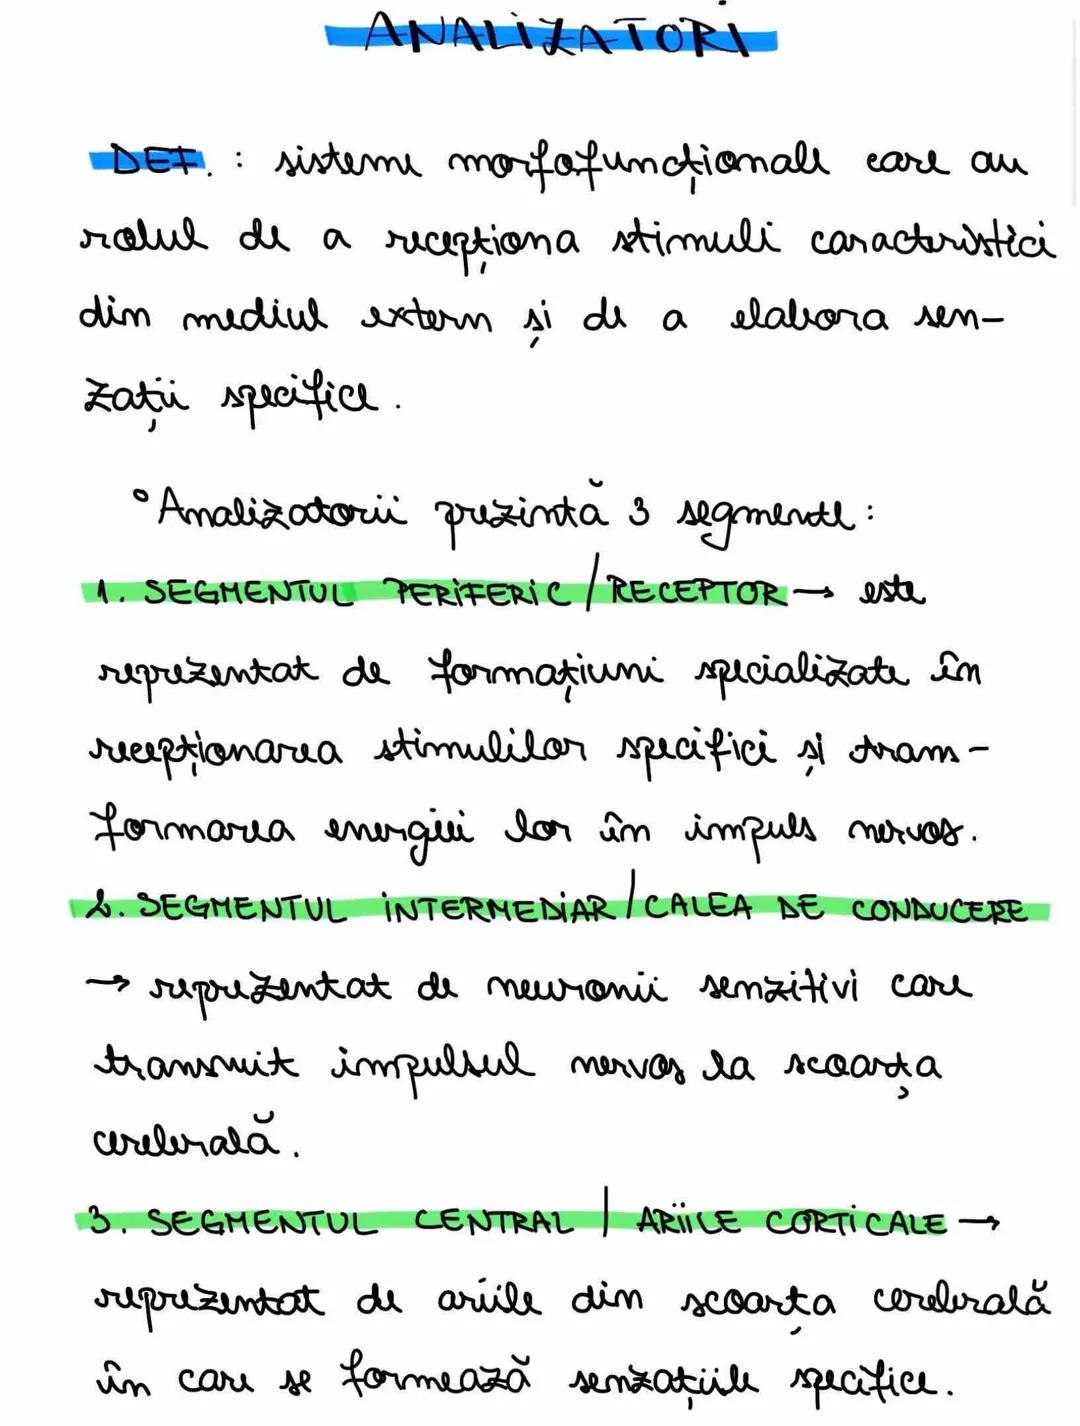 ANALIZATORI
DEF. : sisteme morfofuncționale care au
rolul de a recepționa stimuli caracteristici
din mediul extern și de a elabora sen-
zații specifice.
° Analizatorii prezintă 3 segmente :
1. SEGMENTUL PERIFERIC / RECEPTOR → este
reprezentat de formațiuni specializate în
recepționarea stimulilor specifici și trans-
formarea energiei lor în impuls nervos.
2. SEGMENTUL INTERMEDIAR / CALEA DE CONDUCERE
→ reprezentat de neuronii senzitivi care
transmit impulsul nervos la scoarța
cerebrală.
3. SEGMENTUL CENTRAL / ARIILE CORTICALE →
reprezentat de ariile din scoarța cerebrală
în care se formează senzațiile specifice.